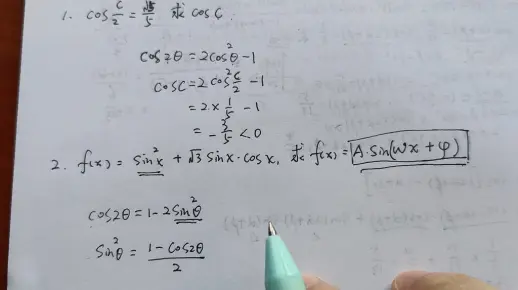 1. cos C/2 = √5/5 求 cosC.
cos2θ = 2cos²θ - 1
cosC = 2cos² C/2 - 1
= 2 × 1/5 - 1
= - 3/5 < 0
2. f(x) = sin²x + √3 sinx·cosx, 求 f(x) = A·sin(wx + φ)
cos2θ = 1 - 2sin²θ
sin²θ = (1 - cos2θ)/2